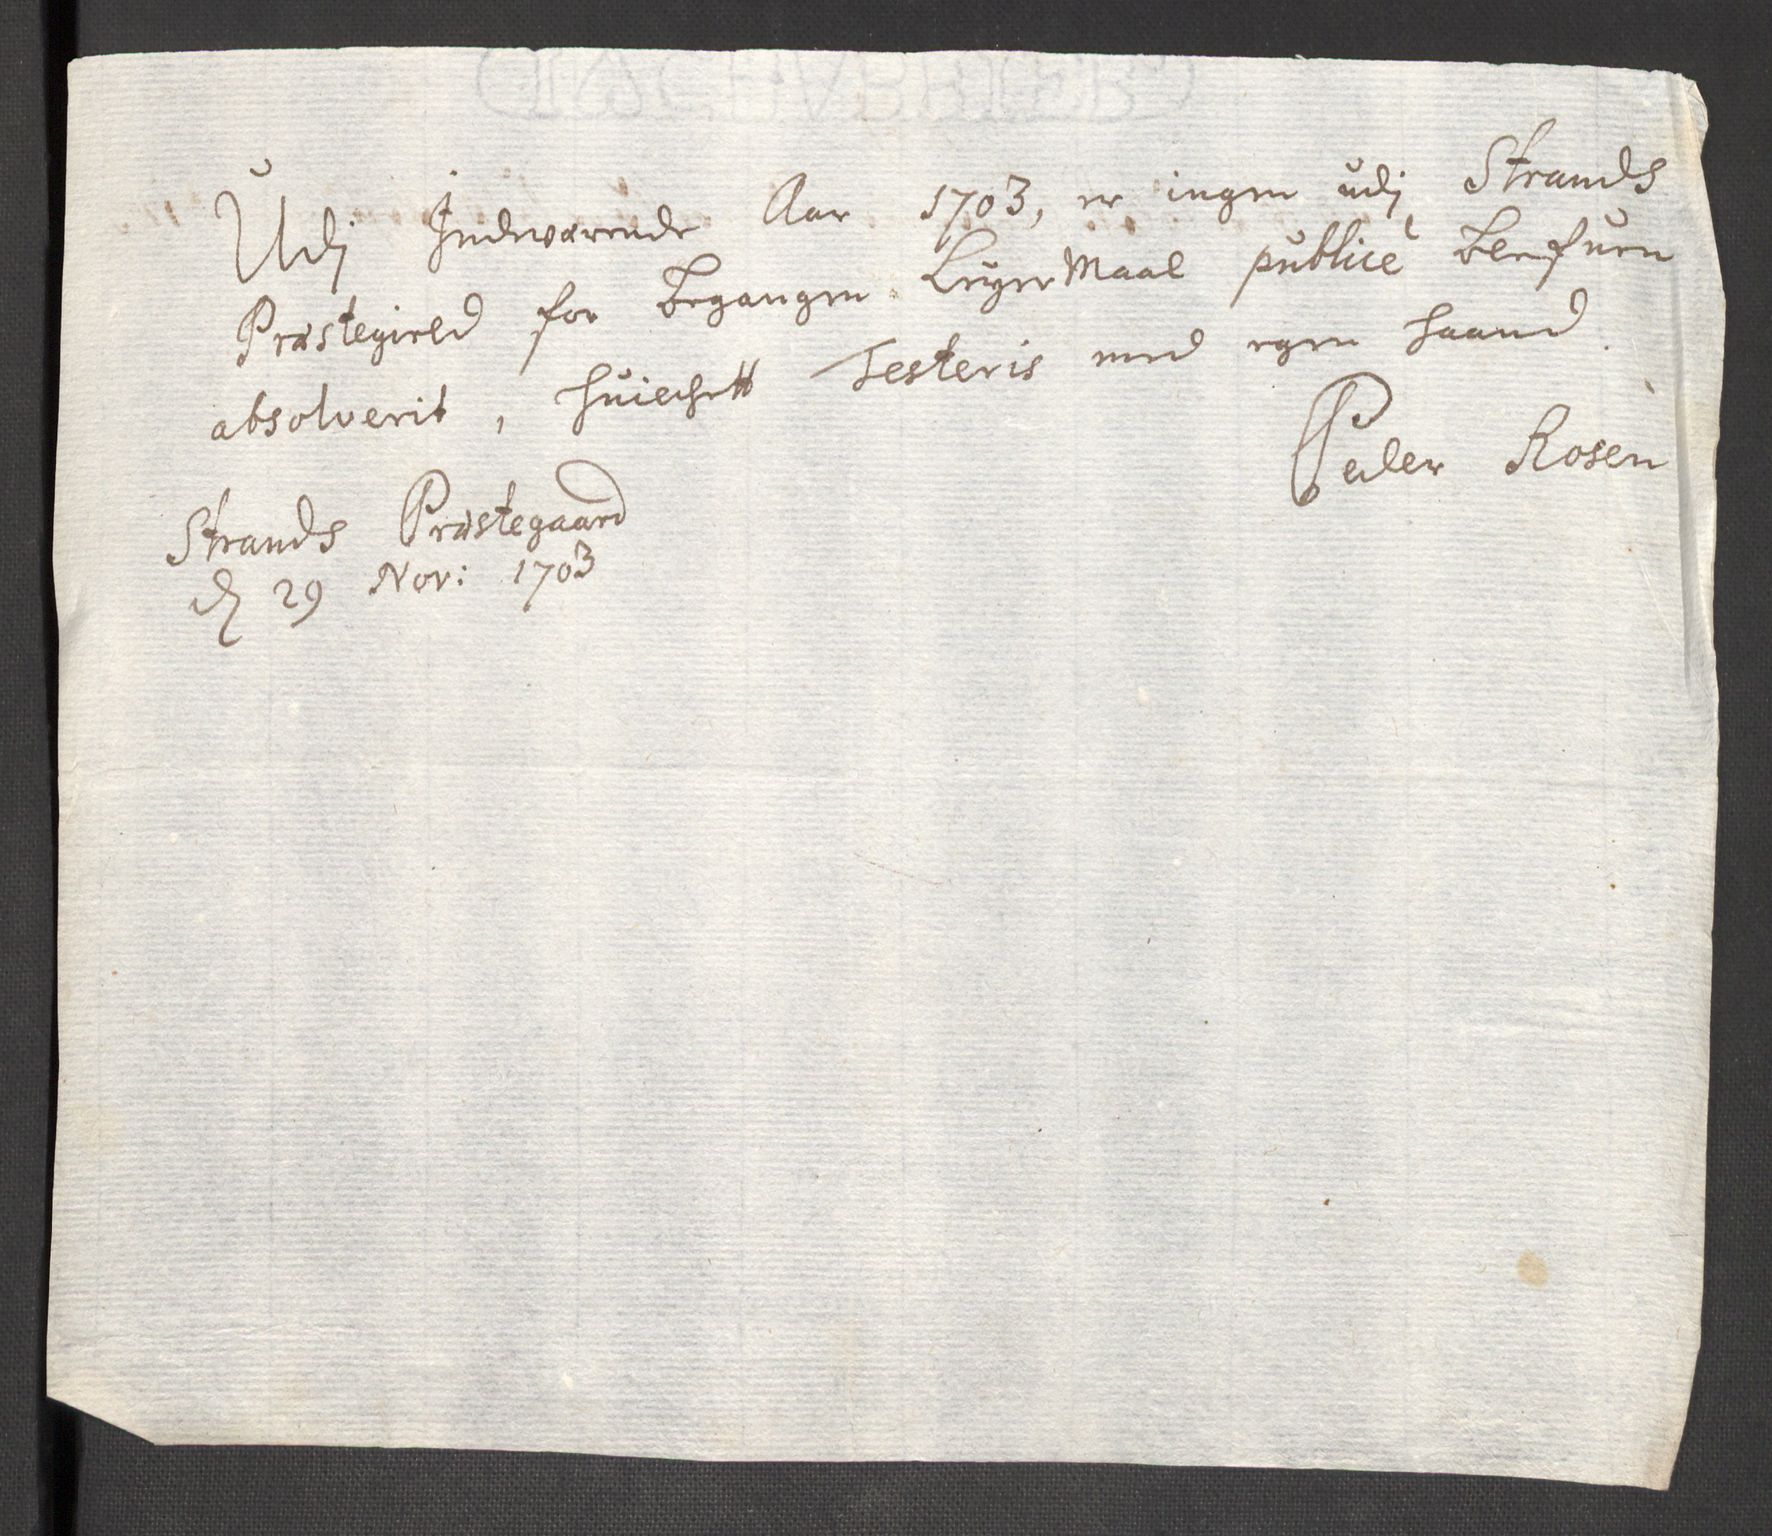 Udj Indeværende Aar 1703, er ingen udj Strands
Præstegield for begangen LeyerMaal publicè
absolverit, huilchett Testeris med egen haand.
Peder Rosen
Strands Præstegaard
d 29 Nov: 1703